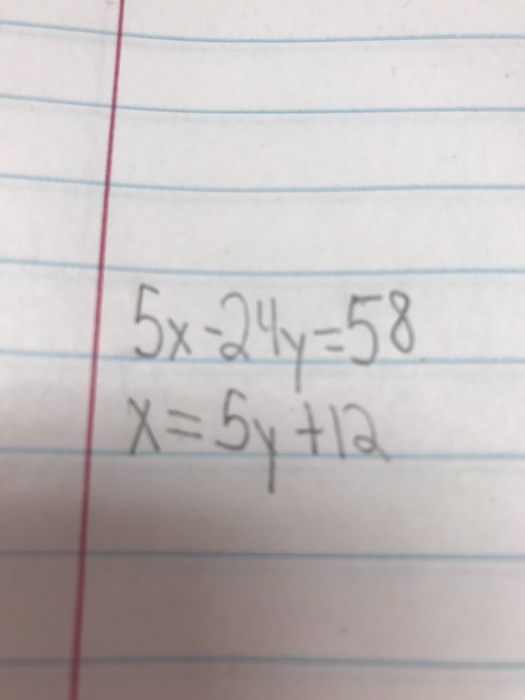 5x-24y=58
x=5y+12